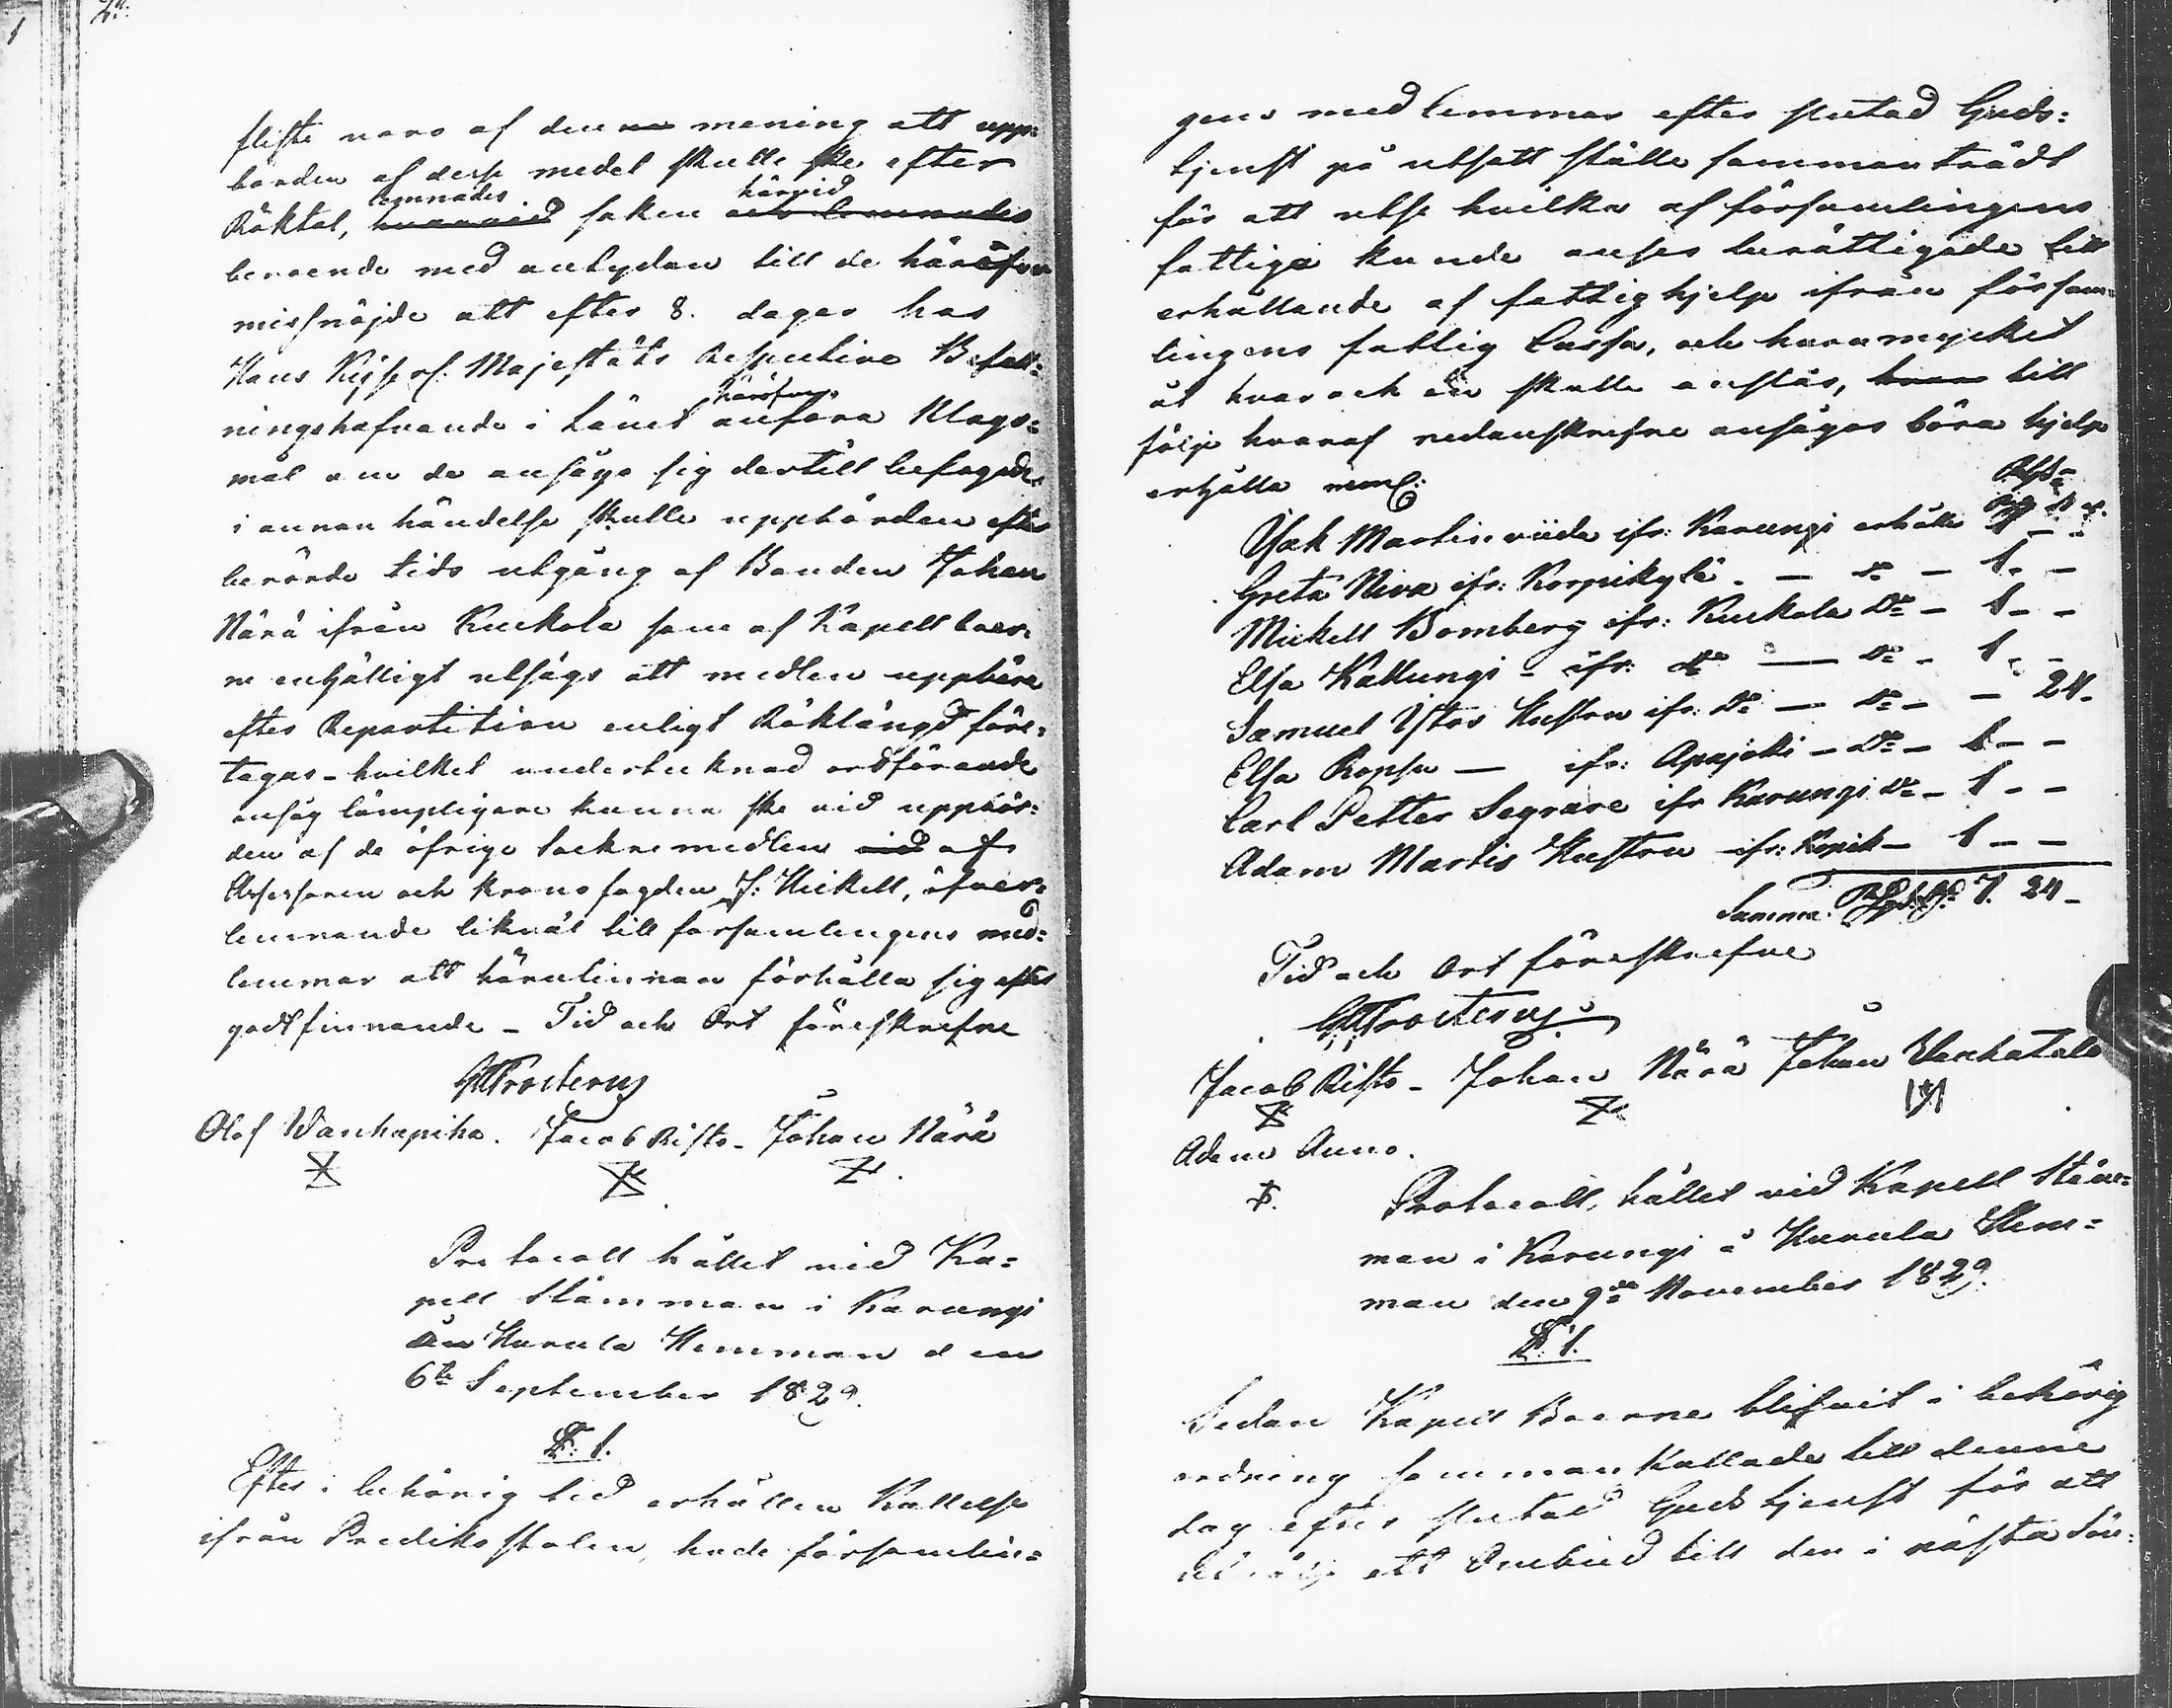 fleste voro af den mening att upp-
börden af desse medel skulle ske efter
lemnades härvid
Röktal, hvarvid saken och lemnades
beroende med antydan till de häröfver
missnöjde att efter 8. dagar hos
Hans Kejserl: Majestäts Respective Befall-
häröfver
ningshafvande i Länet anföra Klago-
mål om de ansågo sig dertill befogade
i annan händelse skulle uppbörden efter
berörde tids utgång af Bonden Johan
Närä ifrån Kuckola som af Kapell boer-
ne enhälligt utsågs att medlen uppbära
efter Repartition enligt Röklängd före-
tagas - hvilket undertecknad ordförande
ansåg lämpligare kunna ske vid uppbör-
den af de öfrige Sockne medlen vid af
Assessoren och krono fogden J: Heikell, öfver-
lemnande likväl till församlingens med-
lemmar att härutinnan förhålla sig efter
godtfinnande - Tid och Ort föreskrefne
Olof Wanhapiha. Jacob Risto - Johan Närä
Protocoll hållet vid Ka-
pell Stämman i Karungi
Hurula Hemman den
6te September 1829.
§: 1.
Efter i behörig tid erhållen Kallelse
ifrån Predikostolen, hade församlin-
gens medlemmar efter slutad Guds-
tjenst på utsatt ställe sammanträdt
för att utse hvilka af församlingens
fattiga kunde anses berättigade till
erhållande af fattighjelp ifrån försam-
lingens fattig Cassa, och huru mycket
åt hvar och en skulle anslås, till
följe hvaraf nedanskrefne ansågos böra hjelp
erhålla neml:
Isak Martin ifr: Karungi erhålle 1 - -
Greta Niva ifr: Korpikylä. - Do - 1. -
Mickell Bomberg ifr: Kuckola Do - 1 - -
Elsa Kallungi - ifr: do - Do - 1 - -
Samuel Hustru ifr: Do - Do - - 24.
Elsa Ropsu - ifr: Apajoki - Do - 1 - -
Carl Petter Segvare ifr Karungi Do - 1 - -
Adam Martis Hustru ifr: - 1 - -
Summa 7. 24 -
Tid och Ort föreskrefne
Jacob Risto - Johan Närä Johan Vanhatalo
Adam Auno.
Protocoll, hållet vid Kapell Stäm-
man i Karungi å Hurula Hem-
man den 9de November 1829.
§ 1.
Sedan Kapell Boerne blifvit i behörig
ordning sammankallade till denne
dag efter slutad Gudstjenst för att
ett Ombud till den i nästa